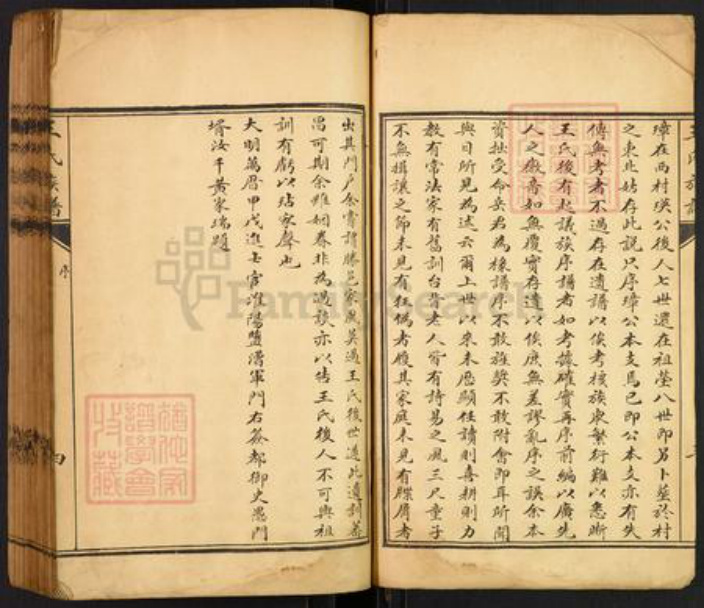 璋在西村瑛公後人七世還在祖塋八世即另卜塋於村
之東北姑存此説只序璋公本支焉已即公本支亦有失
傳無考者不過存在遺譜以俟考核族衆繁衍難以悉晰
王氏後有起議族序譜者如考據確實再序前編以廣先
人之徽音如無覆實存遺以俟庶無差謬亂序之誤余本
資拙受命岳君為椽譜序不敢旌獎不敢附會即耳所聞
與目所見為述云爾上世以來未歷顯任讀則喜耕則力
教有常法家有舊訓台背老人皆有詩易之風三尺童子
不無揖讓之節未見有狂偽者履其家庭未見有臊屑者
出其門戶余嘗謂勝邑家風莫過王氏後世遵此遺訓蕃
昌可期余雖姻眷非為過談亦以告王氏後人不可與祖
訓有虧以玷家聲也
大明萬曆甲戌進士官淮陽鹽漕軍門右僉都御史愚門
壻汝千黃家瑞題
王氏族譜
序
四
王氏族譜
FamilySearch
猶他家
譜學會
收藏